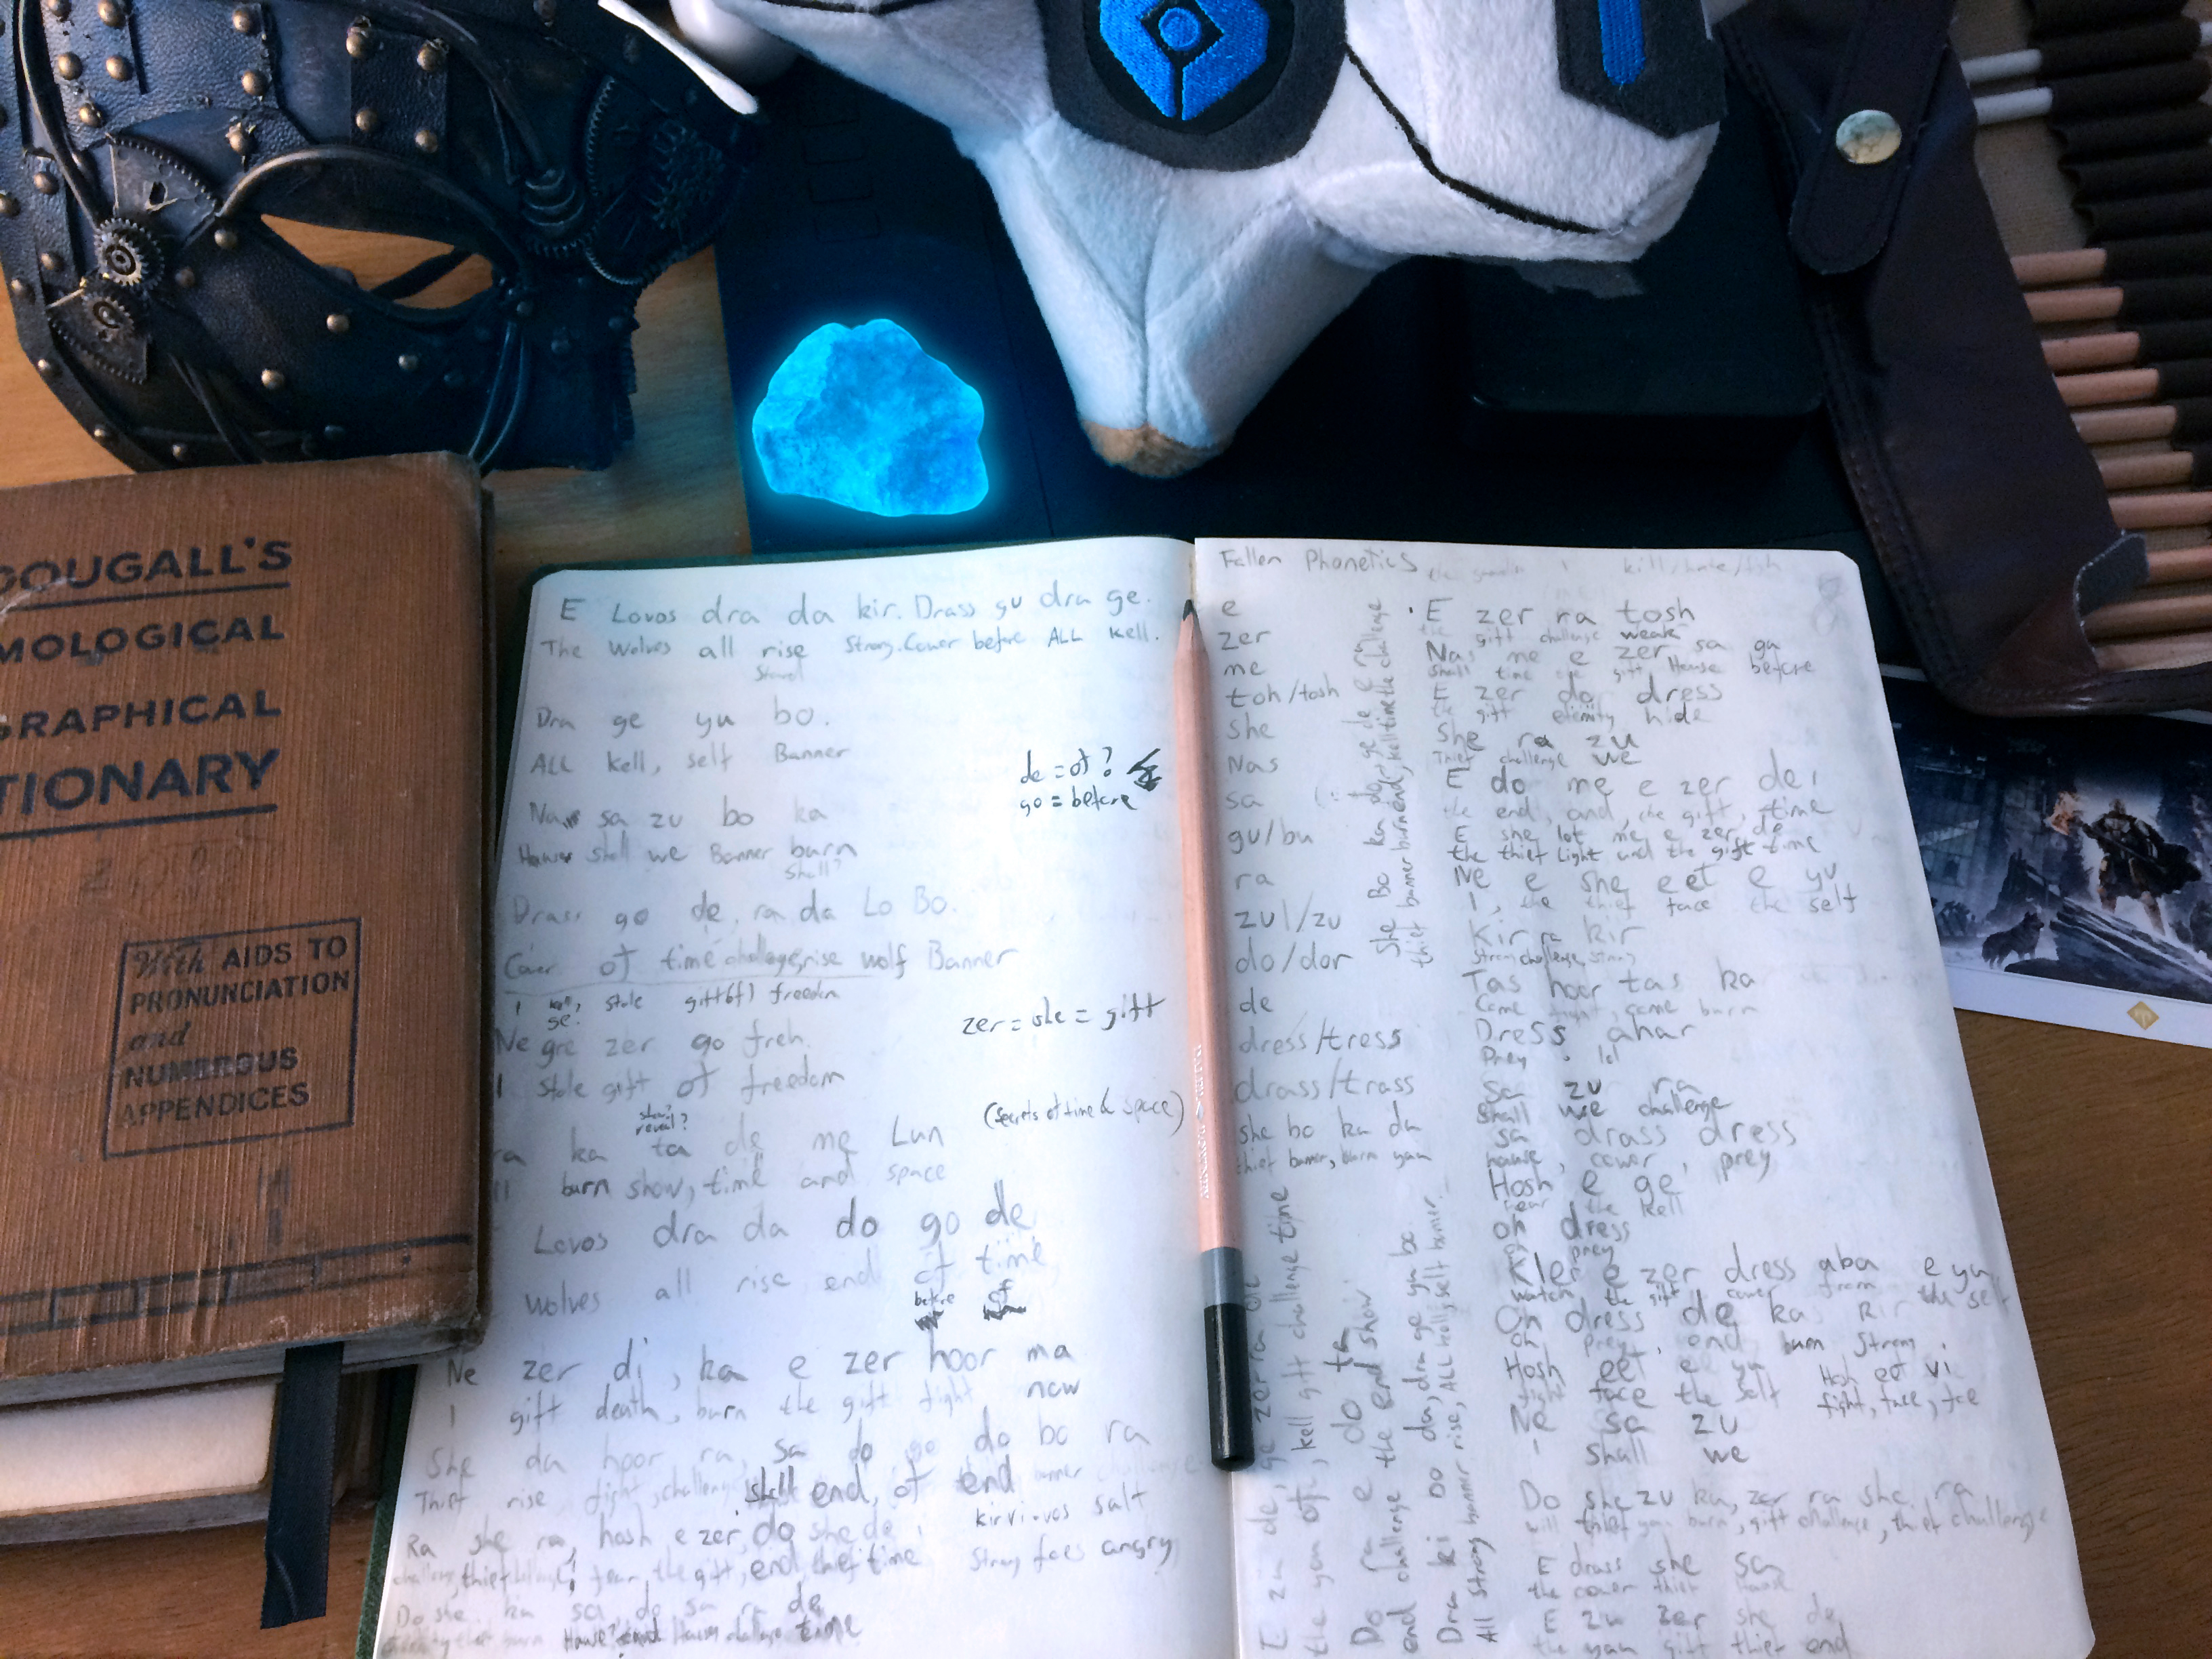 OUGALL'S
MOLOGICAL
GRAPHICAL
TIONARY
With AIDS TO
PRONUNCIATION
and
NUMEROUS
APPENDICES
E Lovos dra da kir. Drass gu dra ge.
The Wolves all rise Strong. Cower before ALL kell.
Dra ge yu bo.
ALL kell, self Banner
de = of?
go = before
sa zu bo ka
shall we Banner burn
shall?
Drass go de, ra da Lo Bo.
Cower of time challenge, rise wolf Banner
stole gift(of) freedom
zer = she = gift
Ne gre zer go freh.
I stole gift of freedom
show?
reveal?
(secrets of time & space)
ra ka ta de me Lun
burn show, time and space
Lovos dra da do go de
wolves all rise end of time
before of
Ne zer di, ka e zer hoor ma
I gift death, burn the gift fight now
She da hoor ra, sa do go do bo ra
Thief rise fight, challenge shall end, of end banner challenge
Ra she ra, hosh e zer, do she de, kir vi vos salt
fear, the gift, end, thief time Strong foes angry
Do she ka sa, do sa ra de
time
Fallen Phonetics
e
zer
me
toh/tosh
she
Nas
sa
gu/bu
ra
zul/zu
do/dor
de
dress/tress
drass/trass
she bo ka da
thief banner, burn
E zer ra tosh
gift challenge weak
Nas me e zer sa gu
shall time the gift House before
E zer do dress
the gift eternity hide
She ra zu
Thief challenge we
E do me e zer de,
the end, and, the gift, time
E she lot me e zer de
the thief Light and the gift time
Ne e she eet e yu
I, the thief face the self
Kir ra kir
Strong challenge, strong
Tas hoor tas ka
Come fight, come burn
Dress ahar
Prey
Sa zu ra
Shall we challenge
Sa drass dress
house, cower, prey
Hosh e ge
fear the kell
oh dress
oh prey
Kler e zer dress aba e yu
watch, the gift cower from the self
Oh dress de ka kir
oh prey, end burn Strong
Hosh eet e yu Hosh eet vi
fight face the self fight, face, foe
Ne sa zu
I shall we
Do she zu ka, zer ra she ra
will thief you burn, gift challenge, thief challenge
E drass she sa
the cower thief House
E zu zer she de
the you gift thief end
She Bo ka do, ge de e ra
thief banner burn end, kell time the challenge
kell gift challenge time
Do ra e do ta
end challenge the end show.
Dra ki bo da, dra ge yu bo.
All Strong banner rise, ALL kell, self banner.